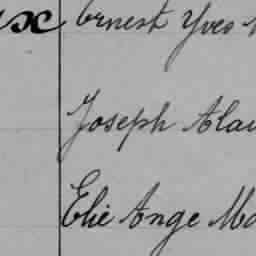 Ernest Yves
Joseph Alai
Elie Ange Ma